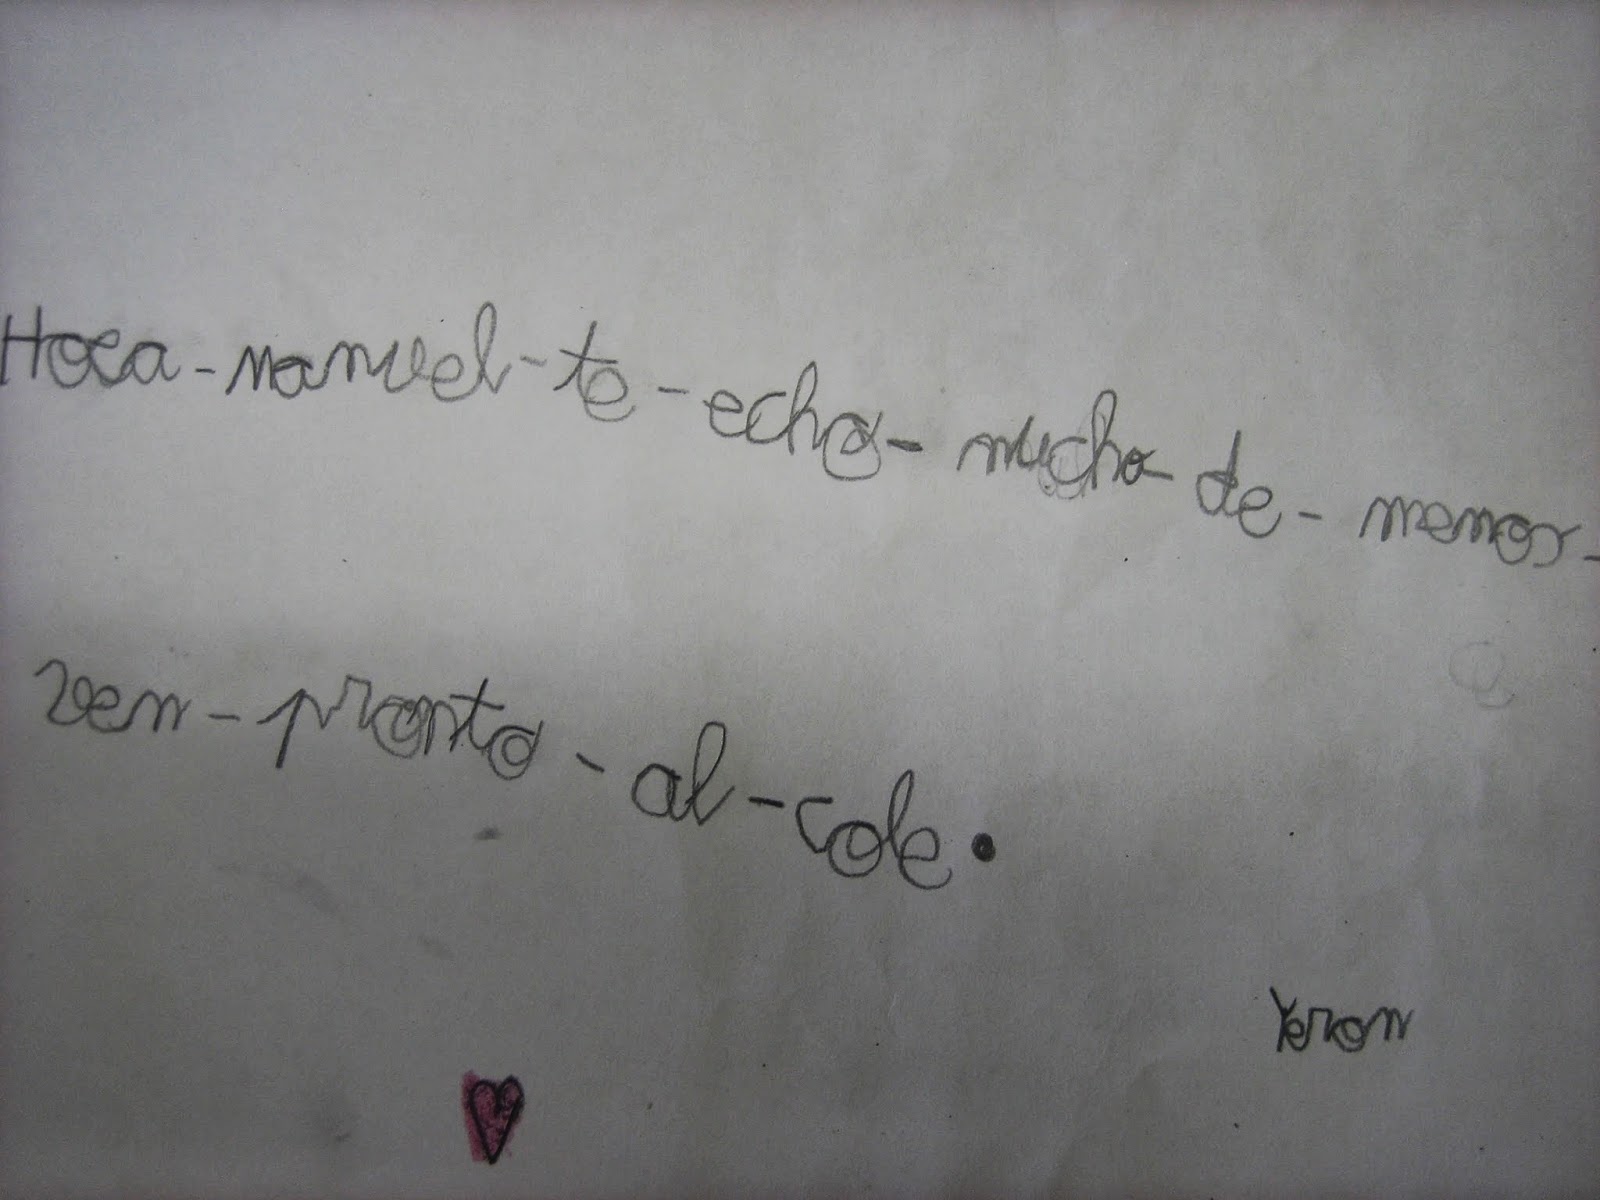 Hola-manuel-te-echo-mucho-de-menos-
ven-pronto-al-cole.
Yeron